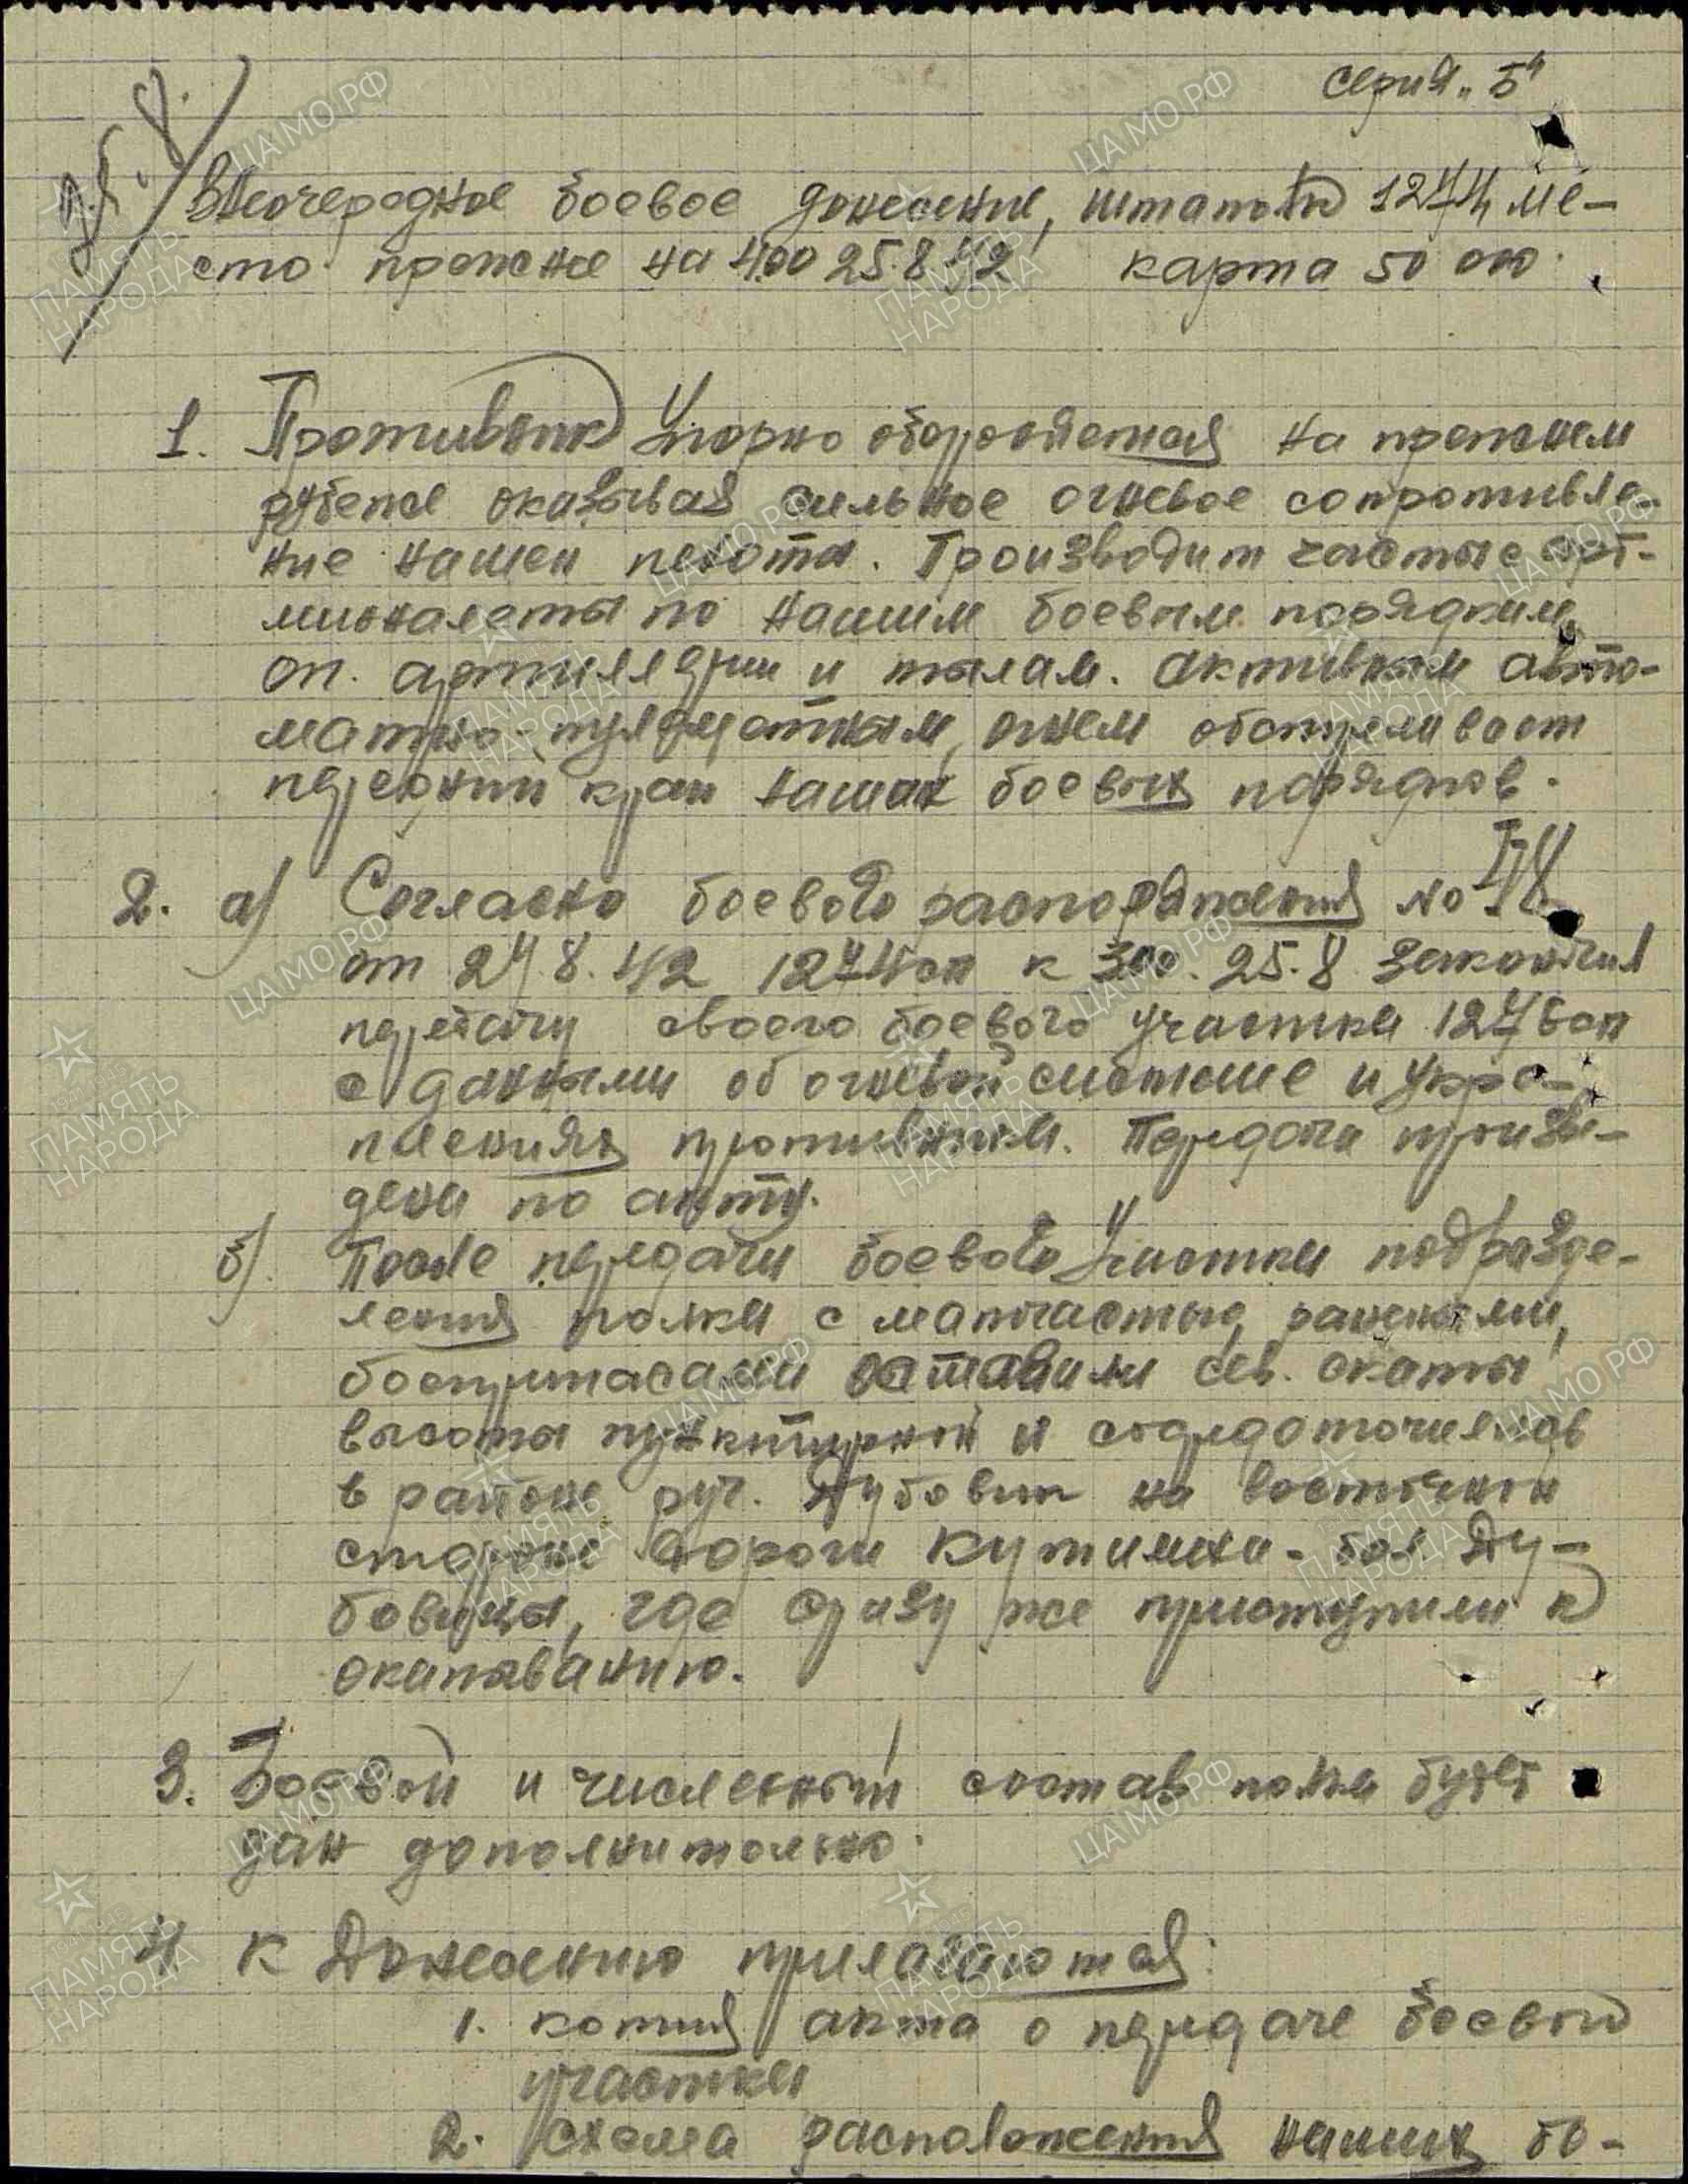 серия „Б"
Внеочередное боевое донесение, штаполк 1274, ме-
сто прежнее на 4.00 25.8.42 карта 50 000.
1. Противник упорно обороняется на прежнем
рубеже оказывая сильное огневое сопротивле-
ние нашей пехоты. Производит частые арт-
миналеты по нашим боевым порядкам,
оп. артиллерии и тылам. Активным авто-
матно-пулеметным, огнем обстреливает
передний край наших боевых порядков.
2. а) Согласно боевого распоряжения №
от 24.8.42 1274 сп к 3.00. 25.8 закончил
передачу своего боевого участка 1276 сп
с данными об огневой системе и укре-
плениях противника. Передача произве-
дена по акту.
б). После передачи боевого участка подразде-
ления полка с матчастью, ранеными,
боеприпасами оставили сев. скаты
высоты пунктирной и сосредоточились
в районе руч. Дубовик на восточной
стороне дороги Кутилиха - бол. Ду-
бовицы, где сразу же приступили к
окапыванию.
3. Боевой и численный состав полка будет
дан дополнительно.
4 К Донесению прилагаются:
1. копия акта о передаче боевого
участка
2. схема расположения наших бо-
ЦАМО.РФ
ПАМЯТЬ
НАРОДА